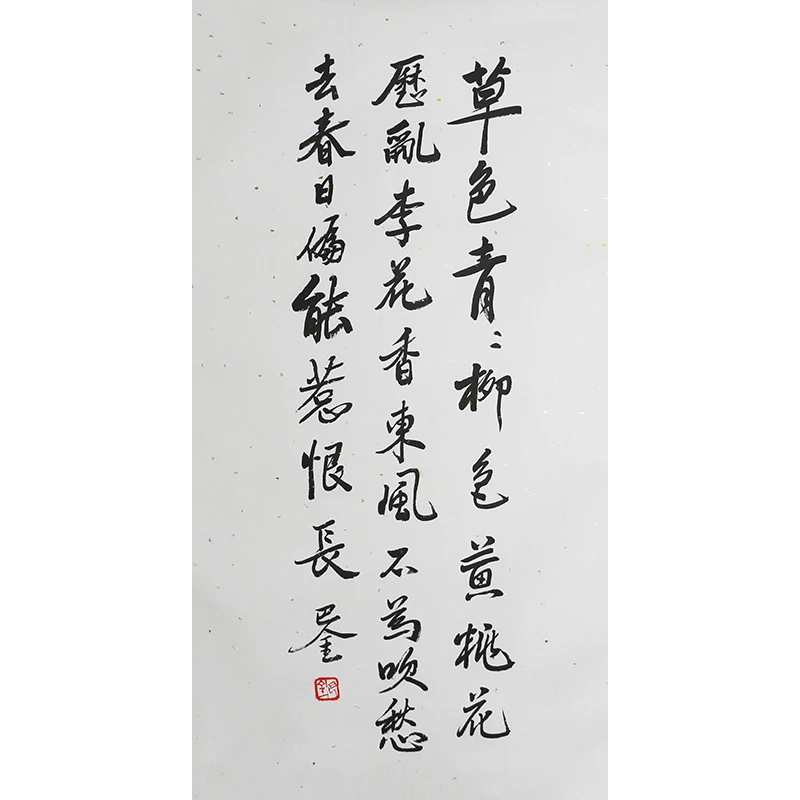 草色青〻柳色黄桃花
歷亂李花香東風不為吹愁
去春日偏能惹恨長